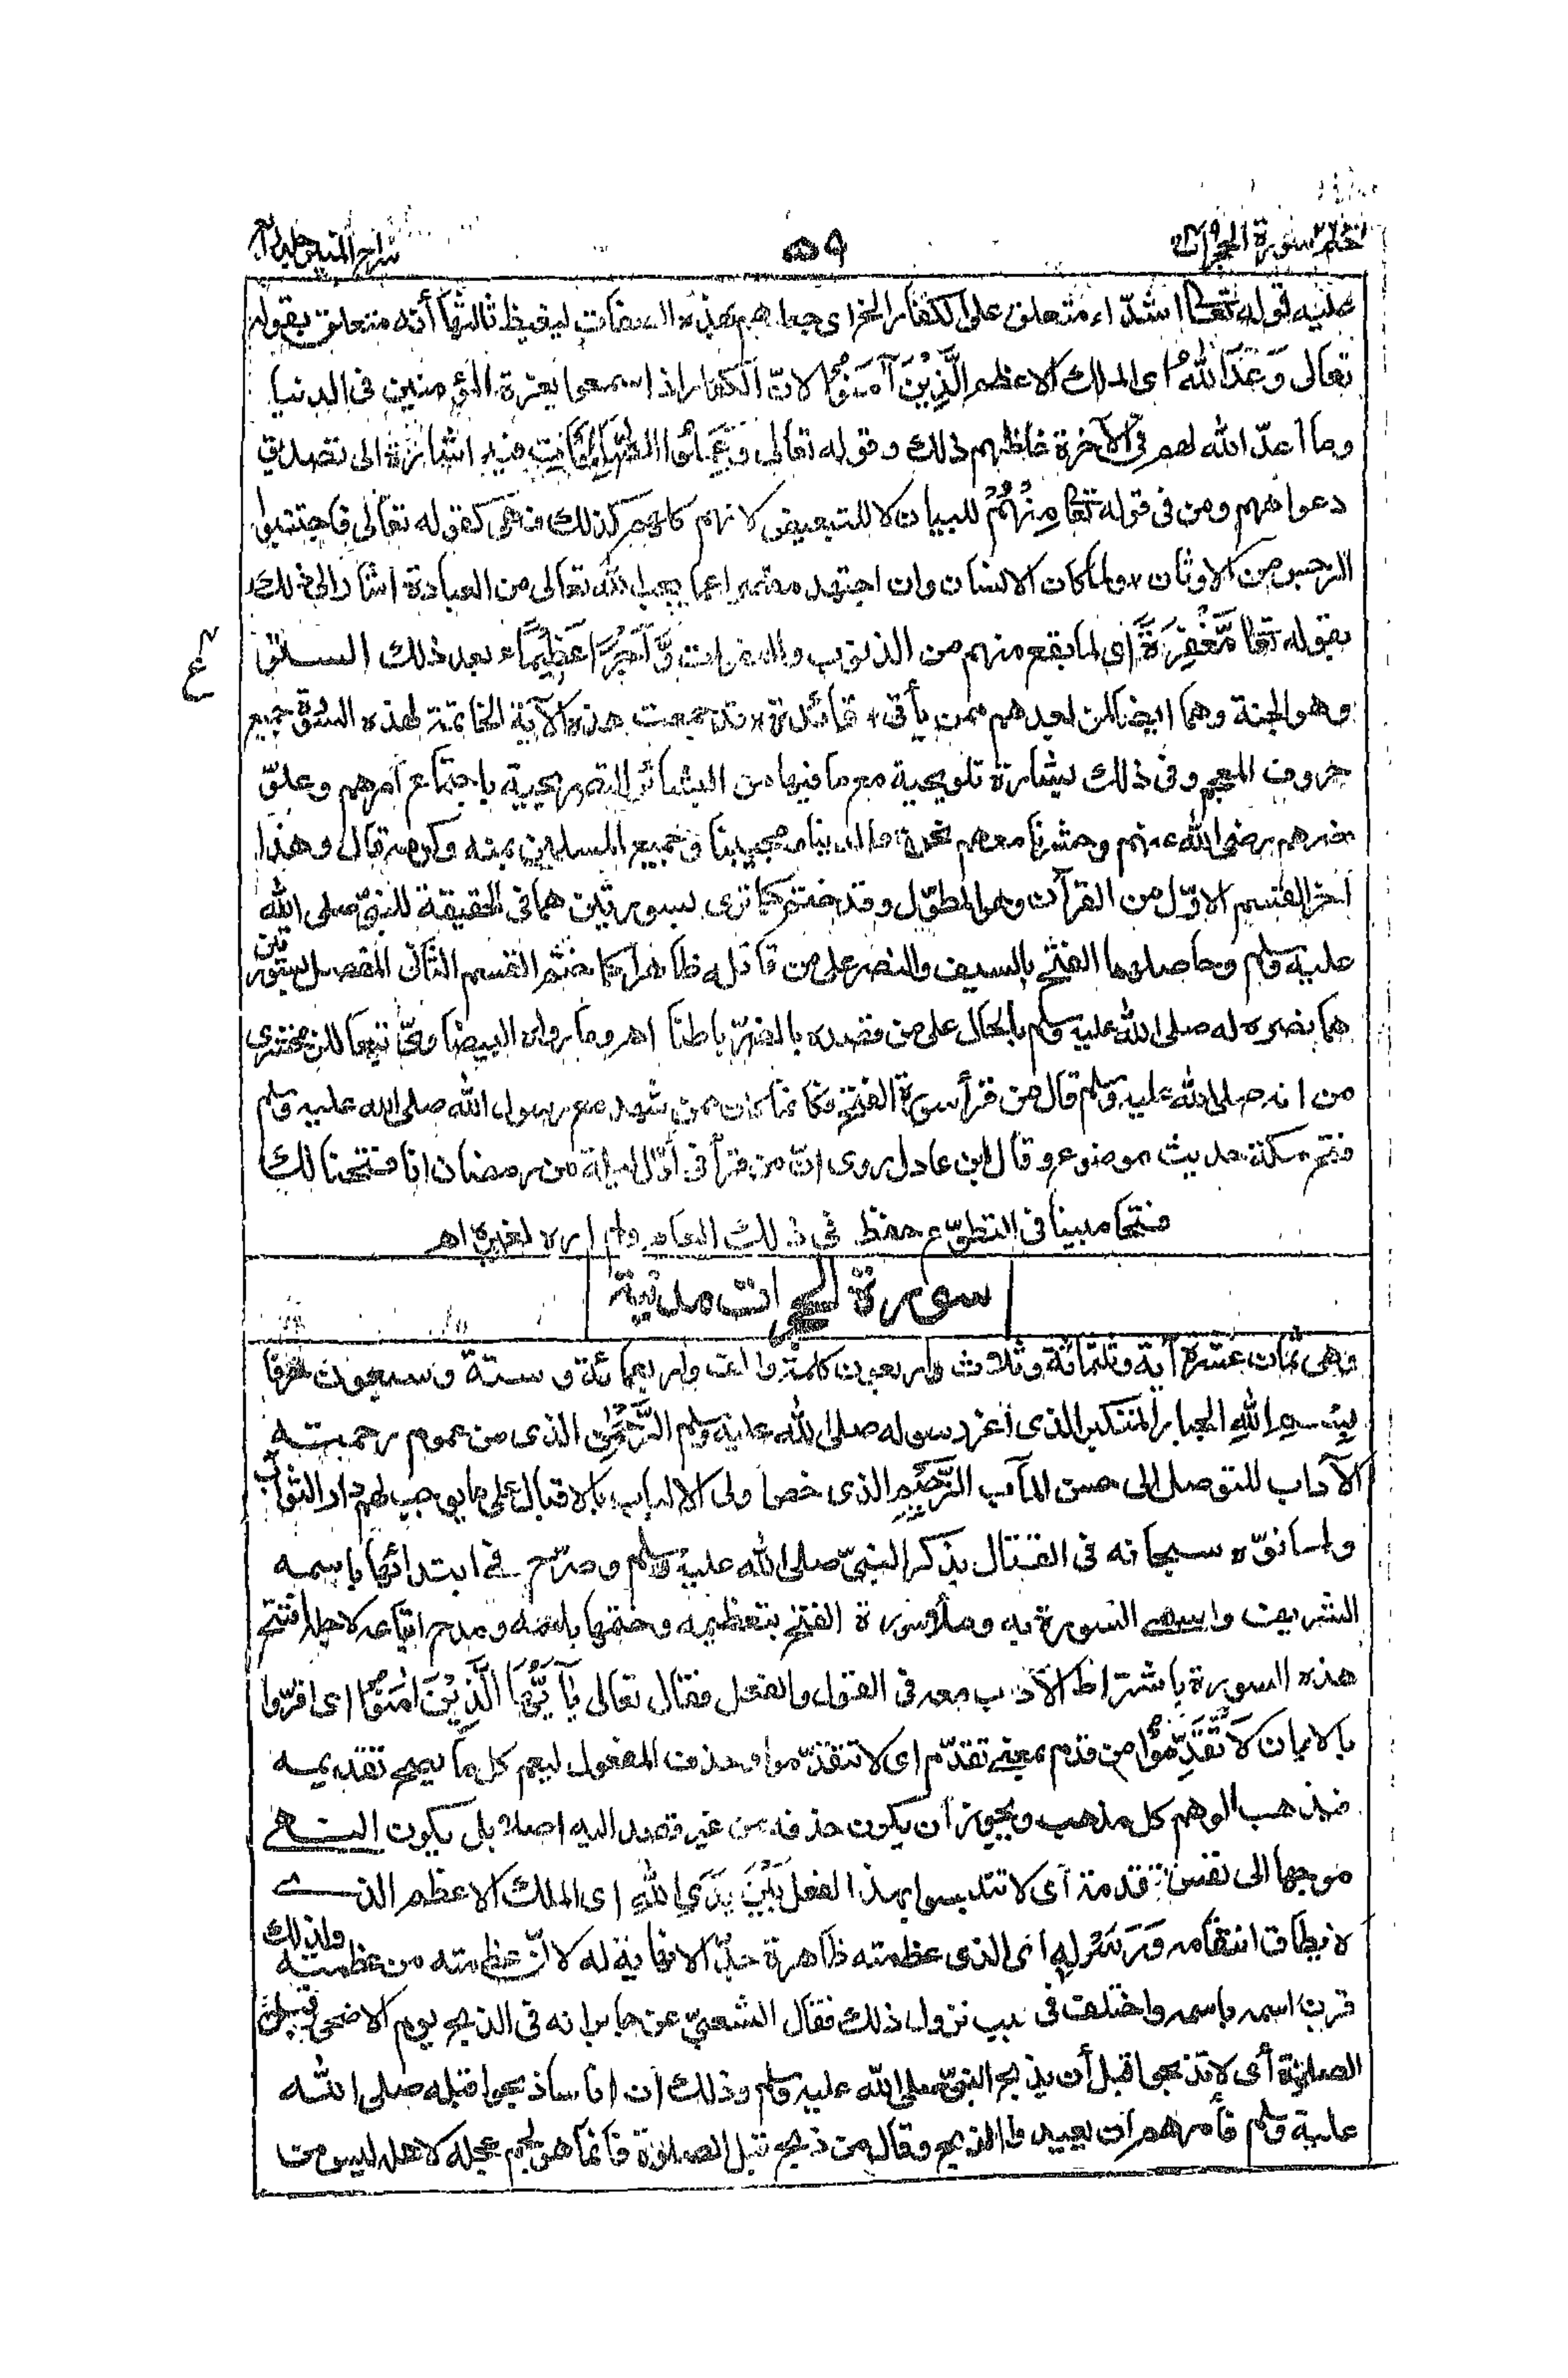 سورة الحجرات
٥٩
السراج المنير جلد رابع
عليه قوله تعالى اشدّاء متعلق على الكفار الخ اى جعلهم بهذه الصفات ليغيظ ثالثها أنه متعلق بقوله
تعالى وَعَدَ اللهُ اى الملك الاعظم الَّذِيْنَ آمَنُوْا لانّ الكفار اذا سمعوا بعزة المؤمنين فى الدنيا
وما اعدّ الله لهم فى الآخرة غاظهم ذلك وقوله تعالى وَعَمِلُوا الصَّالِحَاتِ فيه اشارة الى تصديق
دعواهم ومن فى قوله تعالى مِنْهُمْ للبيان لا للتبعيض لانهم كلهم كذلك فهى كقوله تعالى فاجتنبوا
الرجس من الاوثان ولما كان الانسان وان اجتهد مقصرا عما يجب لله تعالى من العبادة اشار الى ذلك
بقوله تعالى مَّغْفِرَةً اى لما يقع منهم من الذنوب والهفوات وَّأَجْرًا عَظِيْمًا بعد ذلك الستر
ع
وهو الجنة وهما ايضا لمن بعدهم ممن يأتى فائدة قد جمعت هذه الآية الخاتمة لهذه السورة جميع
حروف المعجم وفى ذلك بشارة تلويحية مع ما فيها من البشائر التصريحية باجتماع أمرهم وعلوّ
نصرهم رضى الله عنهم وحشرنا معهم نحن ووالدينا ومحبينا وجميع المسلمين بمنه وكرمه قال وهذا
آخر القسم الاوّل من القرآن وهو المطوّل وقد ختم كما ترى بسورتين هما فى الحقيقة للنبىّ صلى الله
عليه وسلم وحاصلهما الفتح بالسيف والنصر على من قاتله ظاهرا كما ختم القسم الثانى المفصل بسورتين
هما نصرة له صلى الله عليه وسلم بالحال على من قصده بالضرّ باطنا اهـ وما رواه البيضاوىّ تبعا للزمخشرى
من انه صلى الله عليه وسلم قال من قرأ سورة الفتح فكأنما كان ممن شهد مع رسول الله صلى الله عليه وسلم
فتح مكة حديث موضوع وقال ابن عادل روى انّ من قرأ فى أوّل ليلة من رمضان انا فتحنا لك
فتحا مبينا فى التطوّع حفظ فى ذلك العام ولم اره لغيره اهـ
سورة الحجرات مدنية
وهى ثمان عشرة آية وثلثمائة وثلاث واربعون كلمة والف واربعمائة وستة وسبعون حرفا
بِسْمِ اللهِ الجبار المتكبر الذى أعز رسوله صلى الله عليه وسلم الرَّحْمٰنِ الذى من عموم رحمته
الآداب للتوصل الى حسن المآب الرَّحِيْمِ الذى خص اولى الالباب بالاقبال على ما يوجب لهم دار الثواب
ولما نوّه سبحانه فى القتال بذكر النبىّ صلى الله عليه وسلم وصرّح فى ابتدائها باسمه
الشريف واسمى السورة به وملأ سورة الفتح بتعظيمه وختمها باسمه ومدح اتباعه لاجله افتتح
هذه السورة باشتراط الأدب معه فى القول والفعل فقال تعالى يَآ أَيُّهَا الَّذِيْنَ اٰمَنُوْا اى اقرّوا
بالايمان لَا تُقَدِّمُوْا من قدم بمعنى تقدّم اى لا تتقدّموا وحذف المفعول ليعم كل ما يصح تقديمه
فيذهب الوهم كل مذهب ويجوز أن يكون حذفه من غير قصد اليه اصلا بل يكون النهى
موجها الى نفس التقدمة أى لا تتلبسوا بهذا الفعل بَيْنَ يَدَىِ اللهِ اى الملك الاعظم الذى
لا يطاق انتقامه وَرَسُوْلِهِ اى الذى عظمته ظاهرة جدّا لا نهاية له لانّ عظمته من عظمته ولذلك
قرن اسمه باسمه واختلف فى سبب نزول ذلك فقال الشعبىّ عن جابر انه فى الذبح يوم الاضحى قبل
الصلوٰة أى لا تذبحوا قبل أن يذبح النبىّ صلى الله عليه وسلم وذلك ان اناسا ذبحوا قبله صلى الله
عليه وسلم فأمرهم ان يعيدوا الذبح وقال من ذبح قبل الصلوٰة فانما هو لحم عجله لاهله ليس من